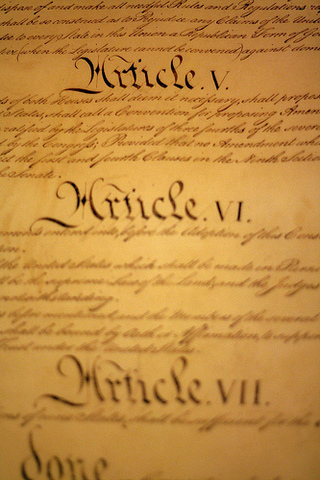 dispose of and make all needful Rules and Regulations
shall be so construed as to Prejudice any Claims of the United
to every State in this Union a Republican Form of
(when the Legislature cannot be convened) against
Article. V.
of both Houses shall deem it necessary, shall propose
States, shall call a Convention for proposing
ratified by the Legislatures of three fourths of the several
by the Congress; Provided that no Amendment
the first and fourth Clauses in the Ninth
Senate.
Article. VI.
entered into, before the Adoption of this
the United States which shall be made in
be the supreme Law of the Land; and the Judges
before mentioned, and the Members of the several
shall be bound by Oath or Affirmation, to
Trust under the United States.
Article. VII.
of States, shall be sufficient for the
done